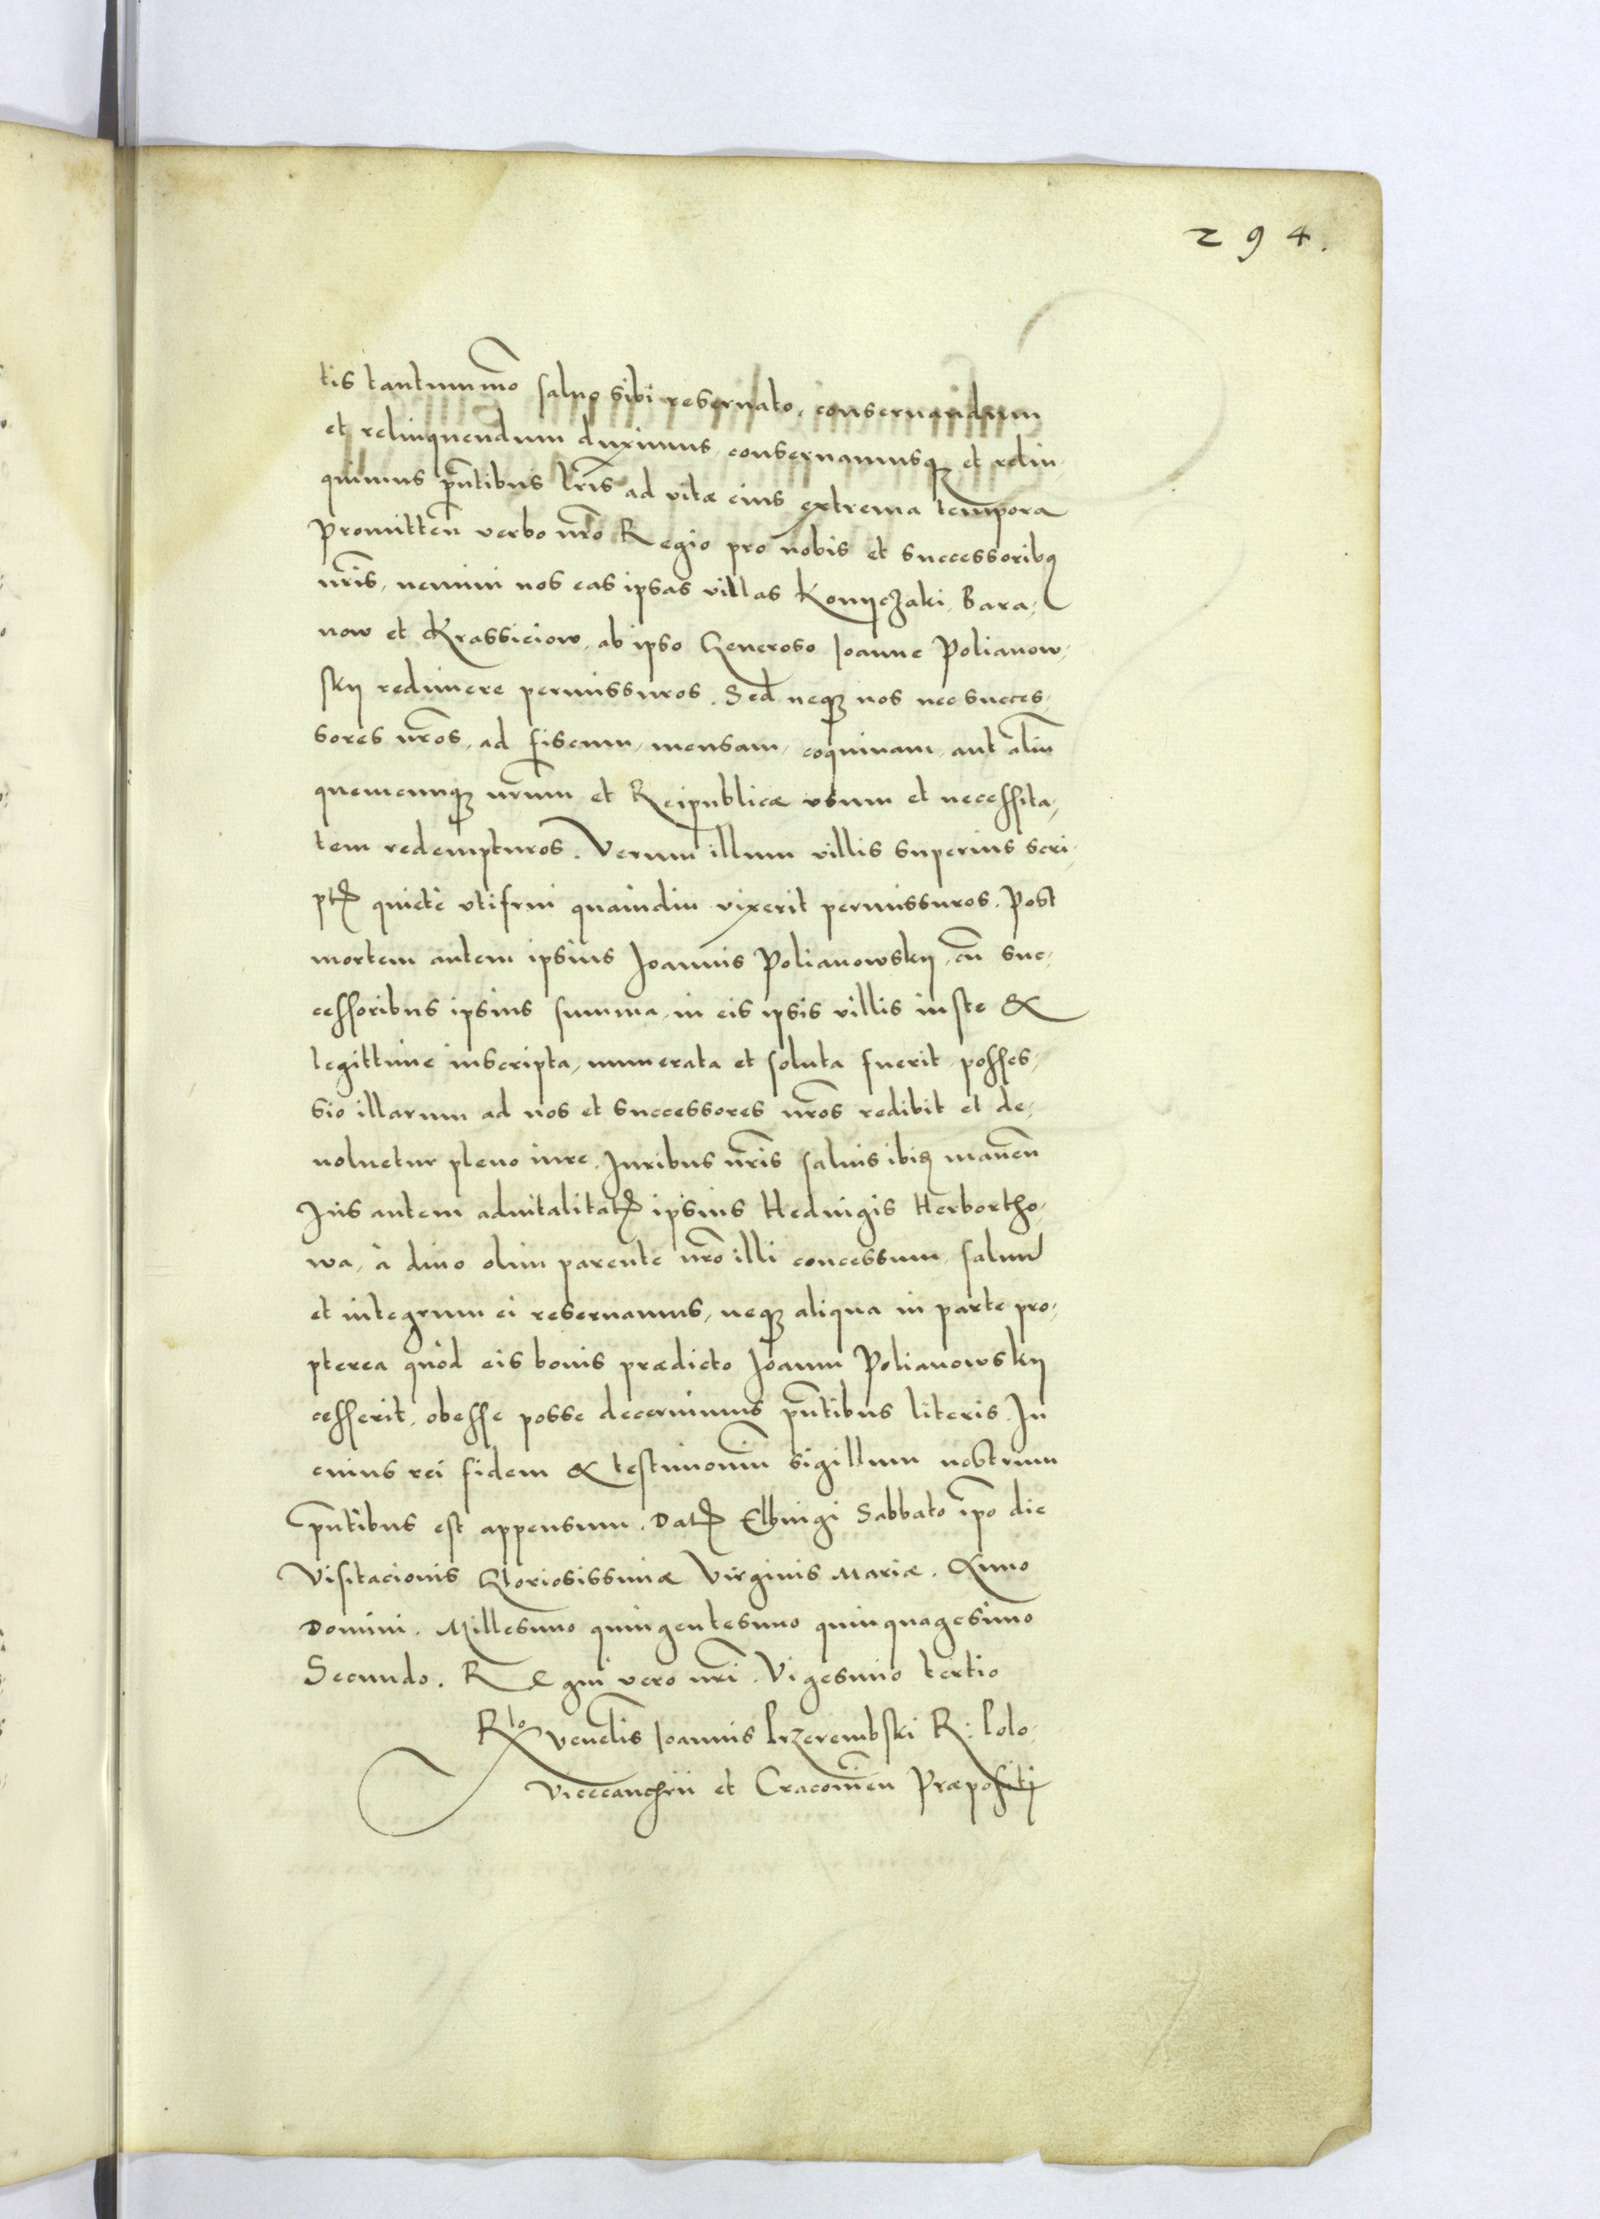 294.
tis tantummo͂ saluo sibi reseruato, conseruandum
et relinquendum duximus, conseruamusq3 et relin-
quimus p͞ntibus l͞ris ad vitæ eius extrema tempora
Promitteñ verbo n͞ro Regio pro nobis et successoribq
n͞ris, nemini nos eas ipsas villas Konyczaki, Bara-
now et Krassiciow, ab ipso Generoso Joanne Polianow-
skij redimere permissuros. Sed neq3 nos nec succes-
sores n͞ros, ad fiscum, mensam, coquinam, aut aliu͞
quemcunq3 n͞rum et Reipublicæ vsum et necessita-
tem redempturos. Verum illum villis superius scri-
pt᷒ quietè vtifrui quamdiu vixerit permissuros. Post
mortem autem ipsius Joannis Polianowskij, cu͞ suc-
cessoribus ipsius summa, in eis ipsis villis iuste &
legittime inscripta, numerata et soluta fuerit, posses-
sio illarum ad nos et successores n͞ros redibit et de-
uoluetur pleno iure. Juribus n͞ris saluis ibi3 maneñ
Jus autem aduitalitat᷒ ipsius Heduigis Herbortho-
wa, à diuo olim parente n͞ro illi concessum, saluu͞
et integrum ei reseruamus, neq3 aliqua in parte pro-
pterea quòd eis bonis prædicto Joanni Polianowskij
cesserit, obesse posse decernimus p͞ntibus literis. In
cuius rei fidem & testimoniu͞ sigillum nostrum
p͞ntibus est appensum. Dat᷒ Elbingi Sabbato ip͞o die
Visitacionis Gloriosissimæ Virginis Mariæ. Anno
Domini. Millesimo quingentesimo quinquagesimo
Secundo. Regni vero n͞ri. Vigesimo tertio
R͞to veneͤlis Joannis Przerembski R: Polo.
Vicecancͤrii et Cracouieñ Præpositi